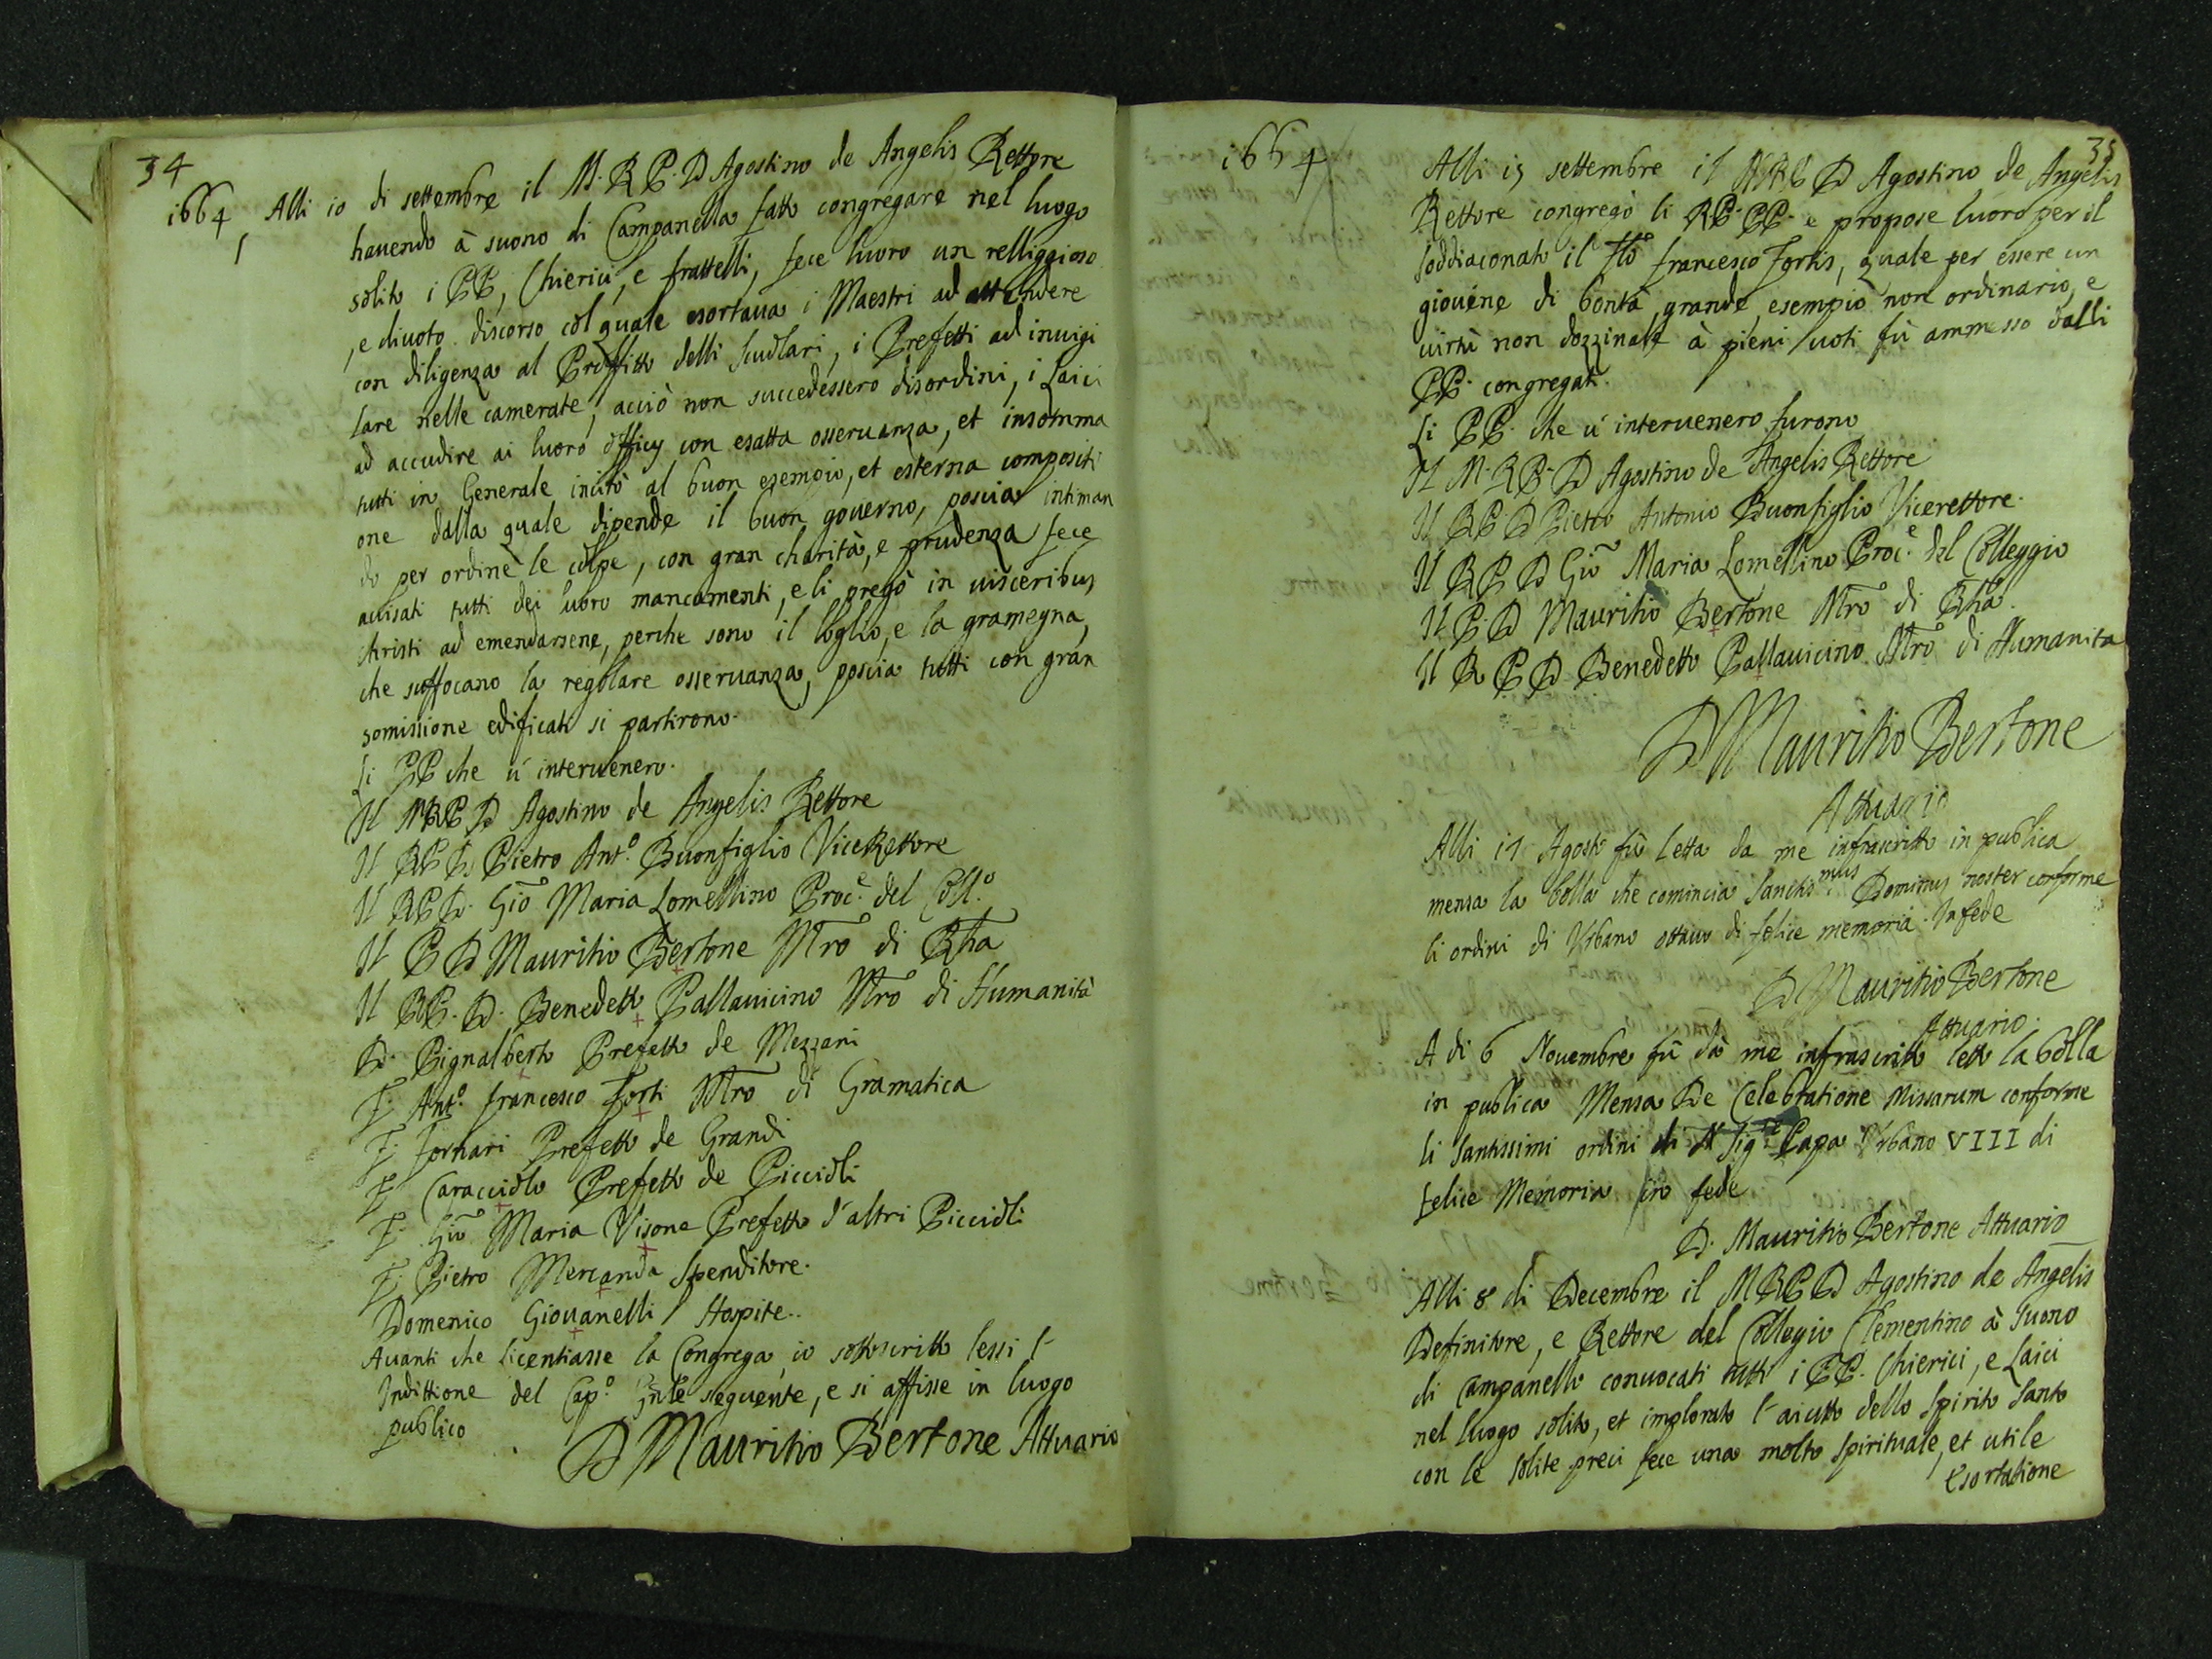 34
1664 Alli 10 di settembre il M. R. P. D Agostino de Angelis Rettore
hauendo à suono di Campanella fatto congregare nel luogo
solito i PP, Chierici, e frattelli, fece luoro un relliggioso
, e diuoto discorso col quale esortaua i Maestri ad attendere
con diligenza al Proffitto delli scuolari, i Prefetti ad inuigi
lare nelle camerate, acciò non succedessero disordini, i Laici
ad accudire ai luoro officij con esatta osseruanza, et insomma
tutti in Generale incitò al buon esempio, et esterna compositi
one dalla quale dipende il buon gouerno, poscia intiman
do per ordine le colpe, con gran charità, e prudenza fece
auisati tutti dei luoro mancamenti, e li pregò in uisceribus
christi ad emendarsene, perche sono il loglio, e la gramegna,
che suffocano la regolare osseruanza, poscia tutti con gran
somissione edificati si partirono.
Li PP che u'interuenero.
Il M R P D Agostino de Angelis Rettore
Il R P D Pietro Ant.o Buonfiglio ViceRettore
Il R P D. Gio Maria Lomellino Proc.e del Coll.o
Il P D Mauritio Bertone Mro di Rha
Il R P. D. Benedetto Pallauicino Mro di Humanità
D. Pignalberto Prefetto de Mezzani
F. Ant.o francesco Forti Mro di Gramatica
F. Fornari Prefetto de Grandi
F. Caracciolo Prefetto de Piccioli
F. Gio Maria Visone Prefetto d'altri Piccioli
F. Pietro Mercanda Spenditore.
Domenico Giouanelli Hospite.
Auanti che licentiasse la Congrega io sottoscritto lessi l'
Indittione del Cap.o Gnle seguente, e si affisse in luogo
publico
D Mauritio Bertone Attuario
35
1664
Alli 15 settembre il M R P D Agostino de Angelis
Rettore congregò li R P. PP. e propose luoro per il
soddiaconato il Flo francesco Fortis, quale per essere un
giouine di bontà grande, esempio non ordinario, e
uirtù non dozzinale à pieni uoti fù ammesso dalli
PP. congregati.
Li PP. che u'interuenero furono
Il M. R P. D Agostino de Angelis Rettore
Il R P D Pietro Antonio Buonfiglio Vicerettore.
Il R P D Gio Maria Lomellino Proc.e del Colleggio
Il P. D Mauritio Bertone Mro di Rha.
Il R P D Benedetto Pallauicino Mro di Humanita
D Mauritio Bertone
Attuario
Alli 17 Agosto fù letta da me infrascritto in publica
mensa la bolla che comincia Sanctis.mus Dominus noster conforme
li ordini di Vrbano ottauo di felice memoria. In fede
D Mauritio Bertone
Attuario.
A di 6 Nouembre fù da me infrascritto letto la bolla
in publica Mensa De Celebratione Missarum conforme
li Santissimi ordini di N Sig.re Papa Vrbano VIII di
felice Memoria in fede
D. Mauritio Bertone Attuario
Alli 8 di Decembre il M R P D Agostino de Angelis
Definitore, e Rettore del Collegio Clementino à suono
di Campanello conuocati tutti i PP. Chierici, e Laici
nel luogo solito, et implorato l'aiutto dello Spirito Santo
con le solite preci fece una molto spirituale, et utile
esortatione